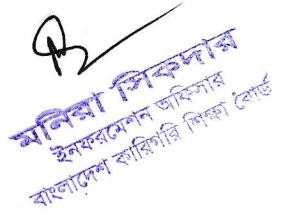 মনিরা সিকদার
ইনফরমেশন অফিসার
বাংলাদেশ কারিগরি শিক্ষা বোর্ড